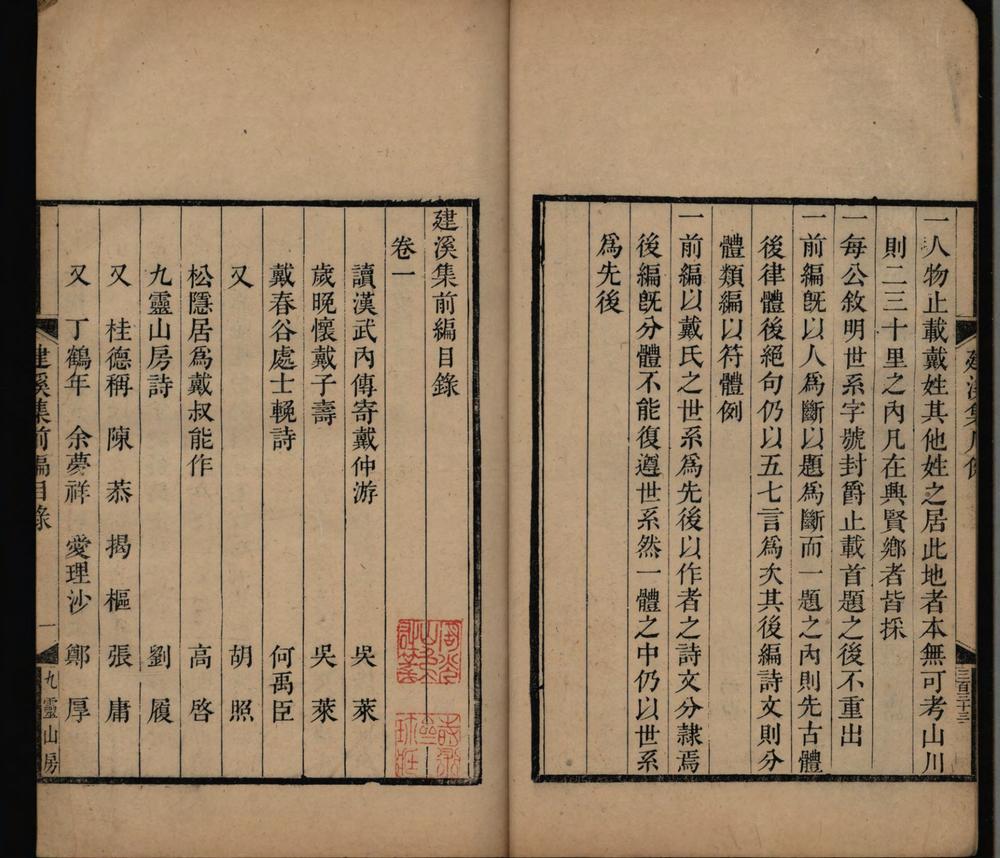 一人物止載戴姓其他姓之居此地者本無可考山川
則二三十里之內凡在興賢鄉者皆採
一每公敘明世系字號封爵止載首題之後不重出
一前編旣以人爲斷以題爲斷而一題之內則先古體
後律體後絕句仍以五七言爲次其後編詩文則分
體類編以符體例
一前編以戴氏之世系爲先後以作者之詩文分隷焉
後編旣分體不能復遵世系然一體之中仍以世系
爲先後
建溪集凡例
三百三十三
建溪集前編目錄
卷一
讀漢武內傳寄戴仲游 吳萊
歲晚懷戴子壽 吳萊
戴春谷處士輓詩 何禹臣
又 胡照
松隱居爲戴叔能作 高啓
九靈山房詩 劉履
又 桂德稱 陳㤗 揭樞 張庸
又 丁鶴年 余夢祥 愛理沙 鄭厚
建溪集前編目錄
一
九靈山房